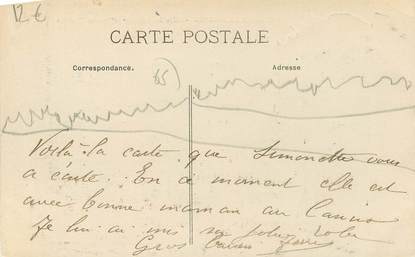 12 €
CARTE POSTALE
Correspondance.
Adresse
65
Voilà la carte que Simonette vous
a écrite. En ce moment elle est
avec bonne maman au
Je lui ai mis sa jolie robe
Gros